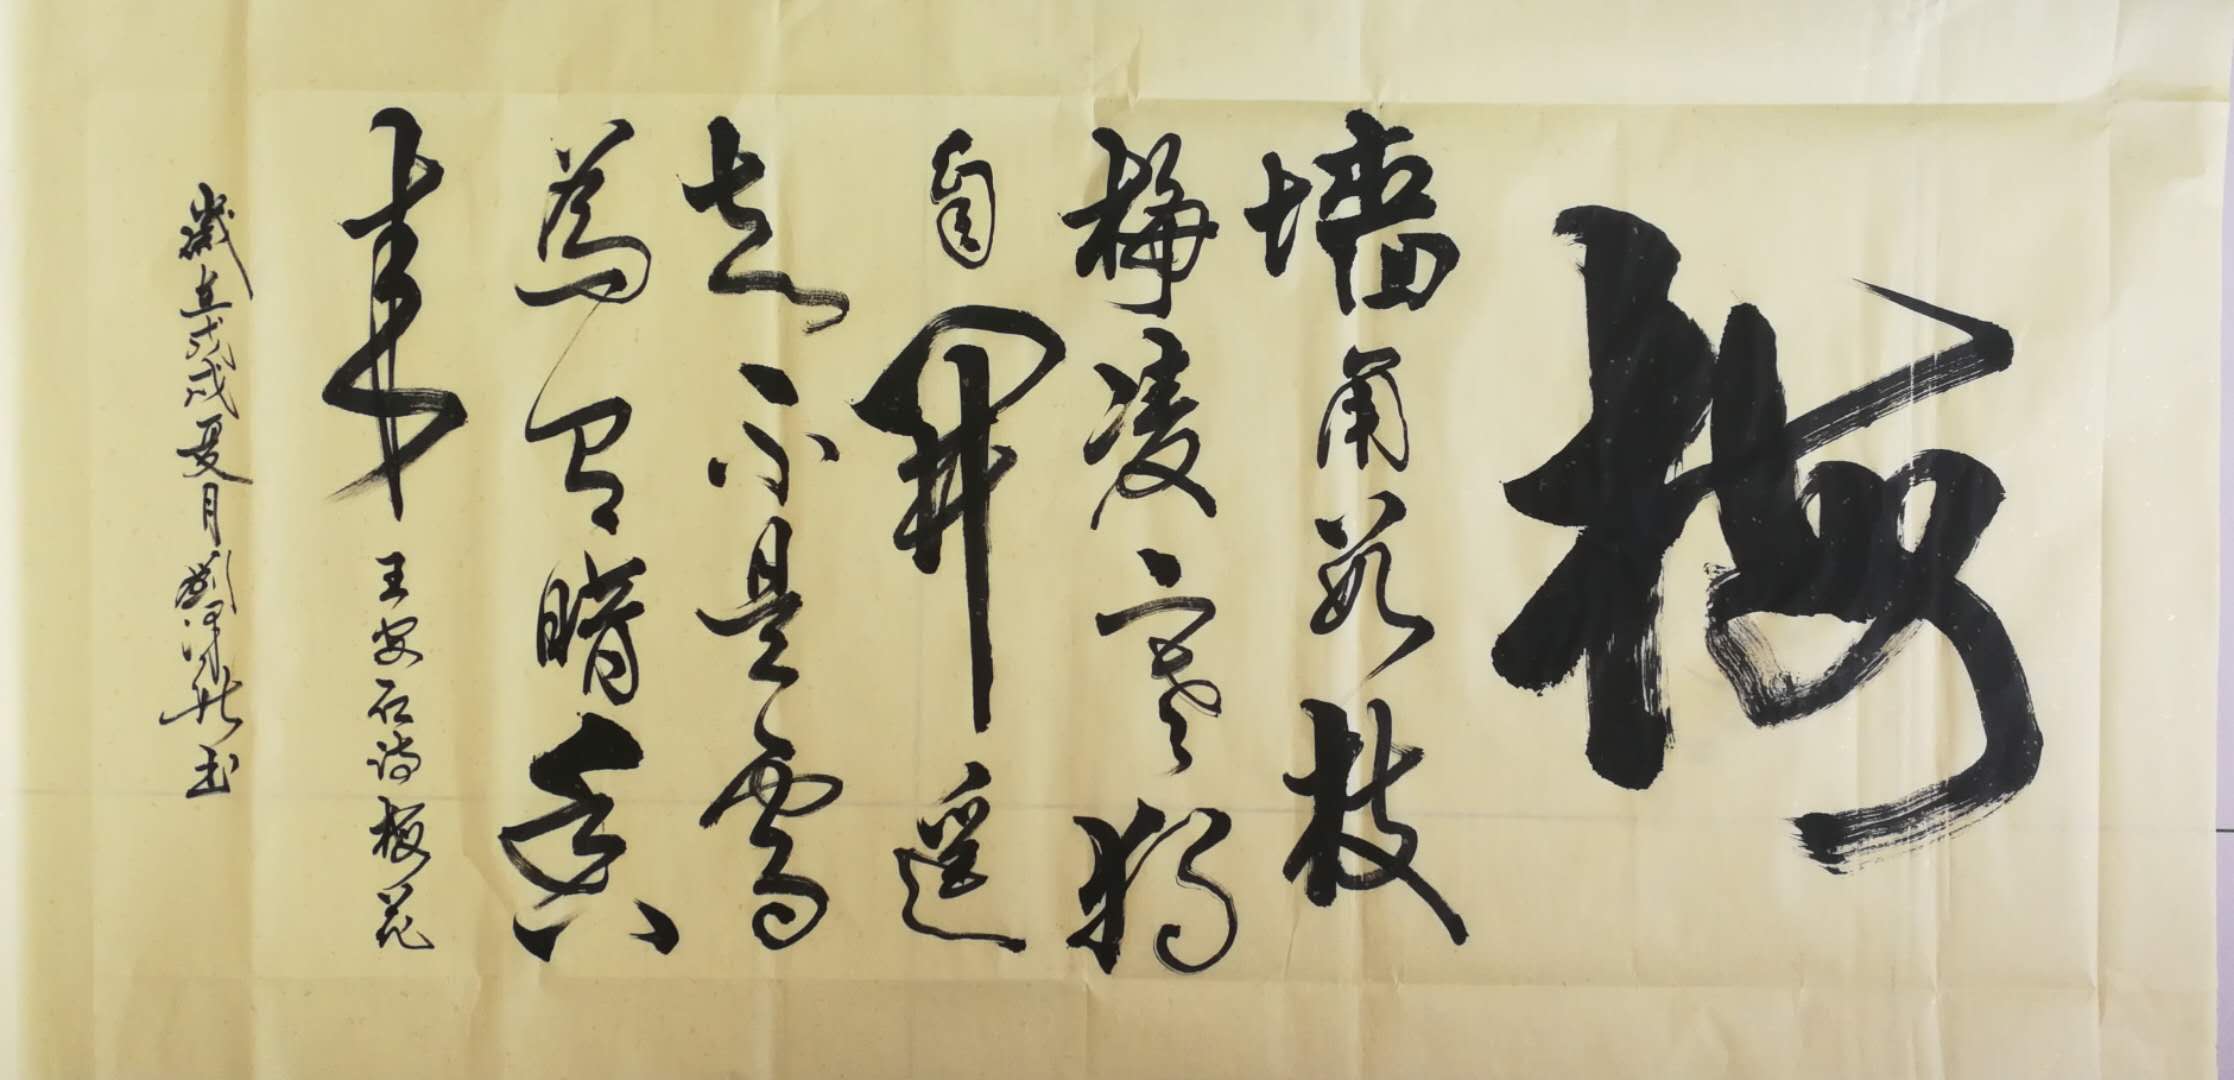 梅
墙角数枝
梅凌寒独
自开遥
知不是雪
为有暗香
来
王安石诗梅花
岁在戊戌夏月刘泽书